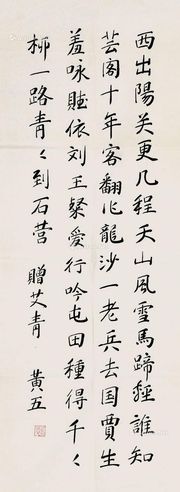 西出陽关更几程天山風雪馬蹄輕誰知
芸阁十年客翻作龍沙一老兵去国賈生
羞咏賦依刘王粲愛行吟屯田種得千々
柳一路青々到石营 贈艾青 黄五